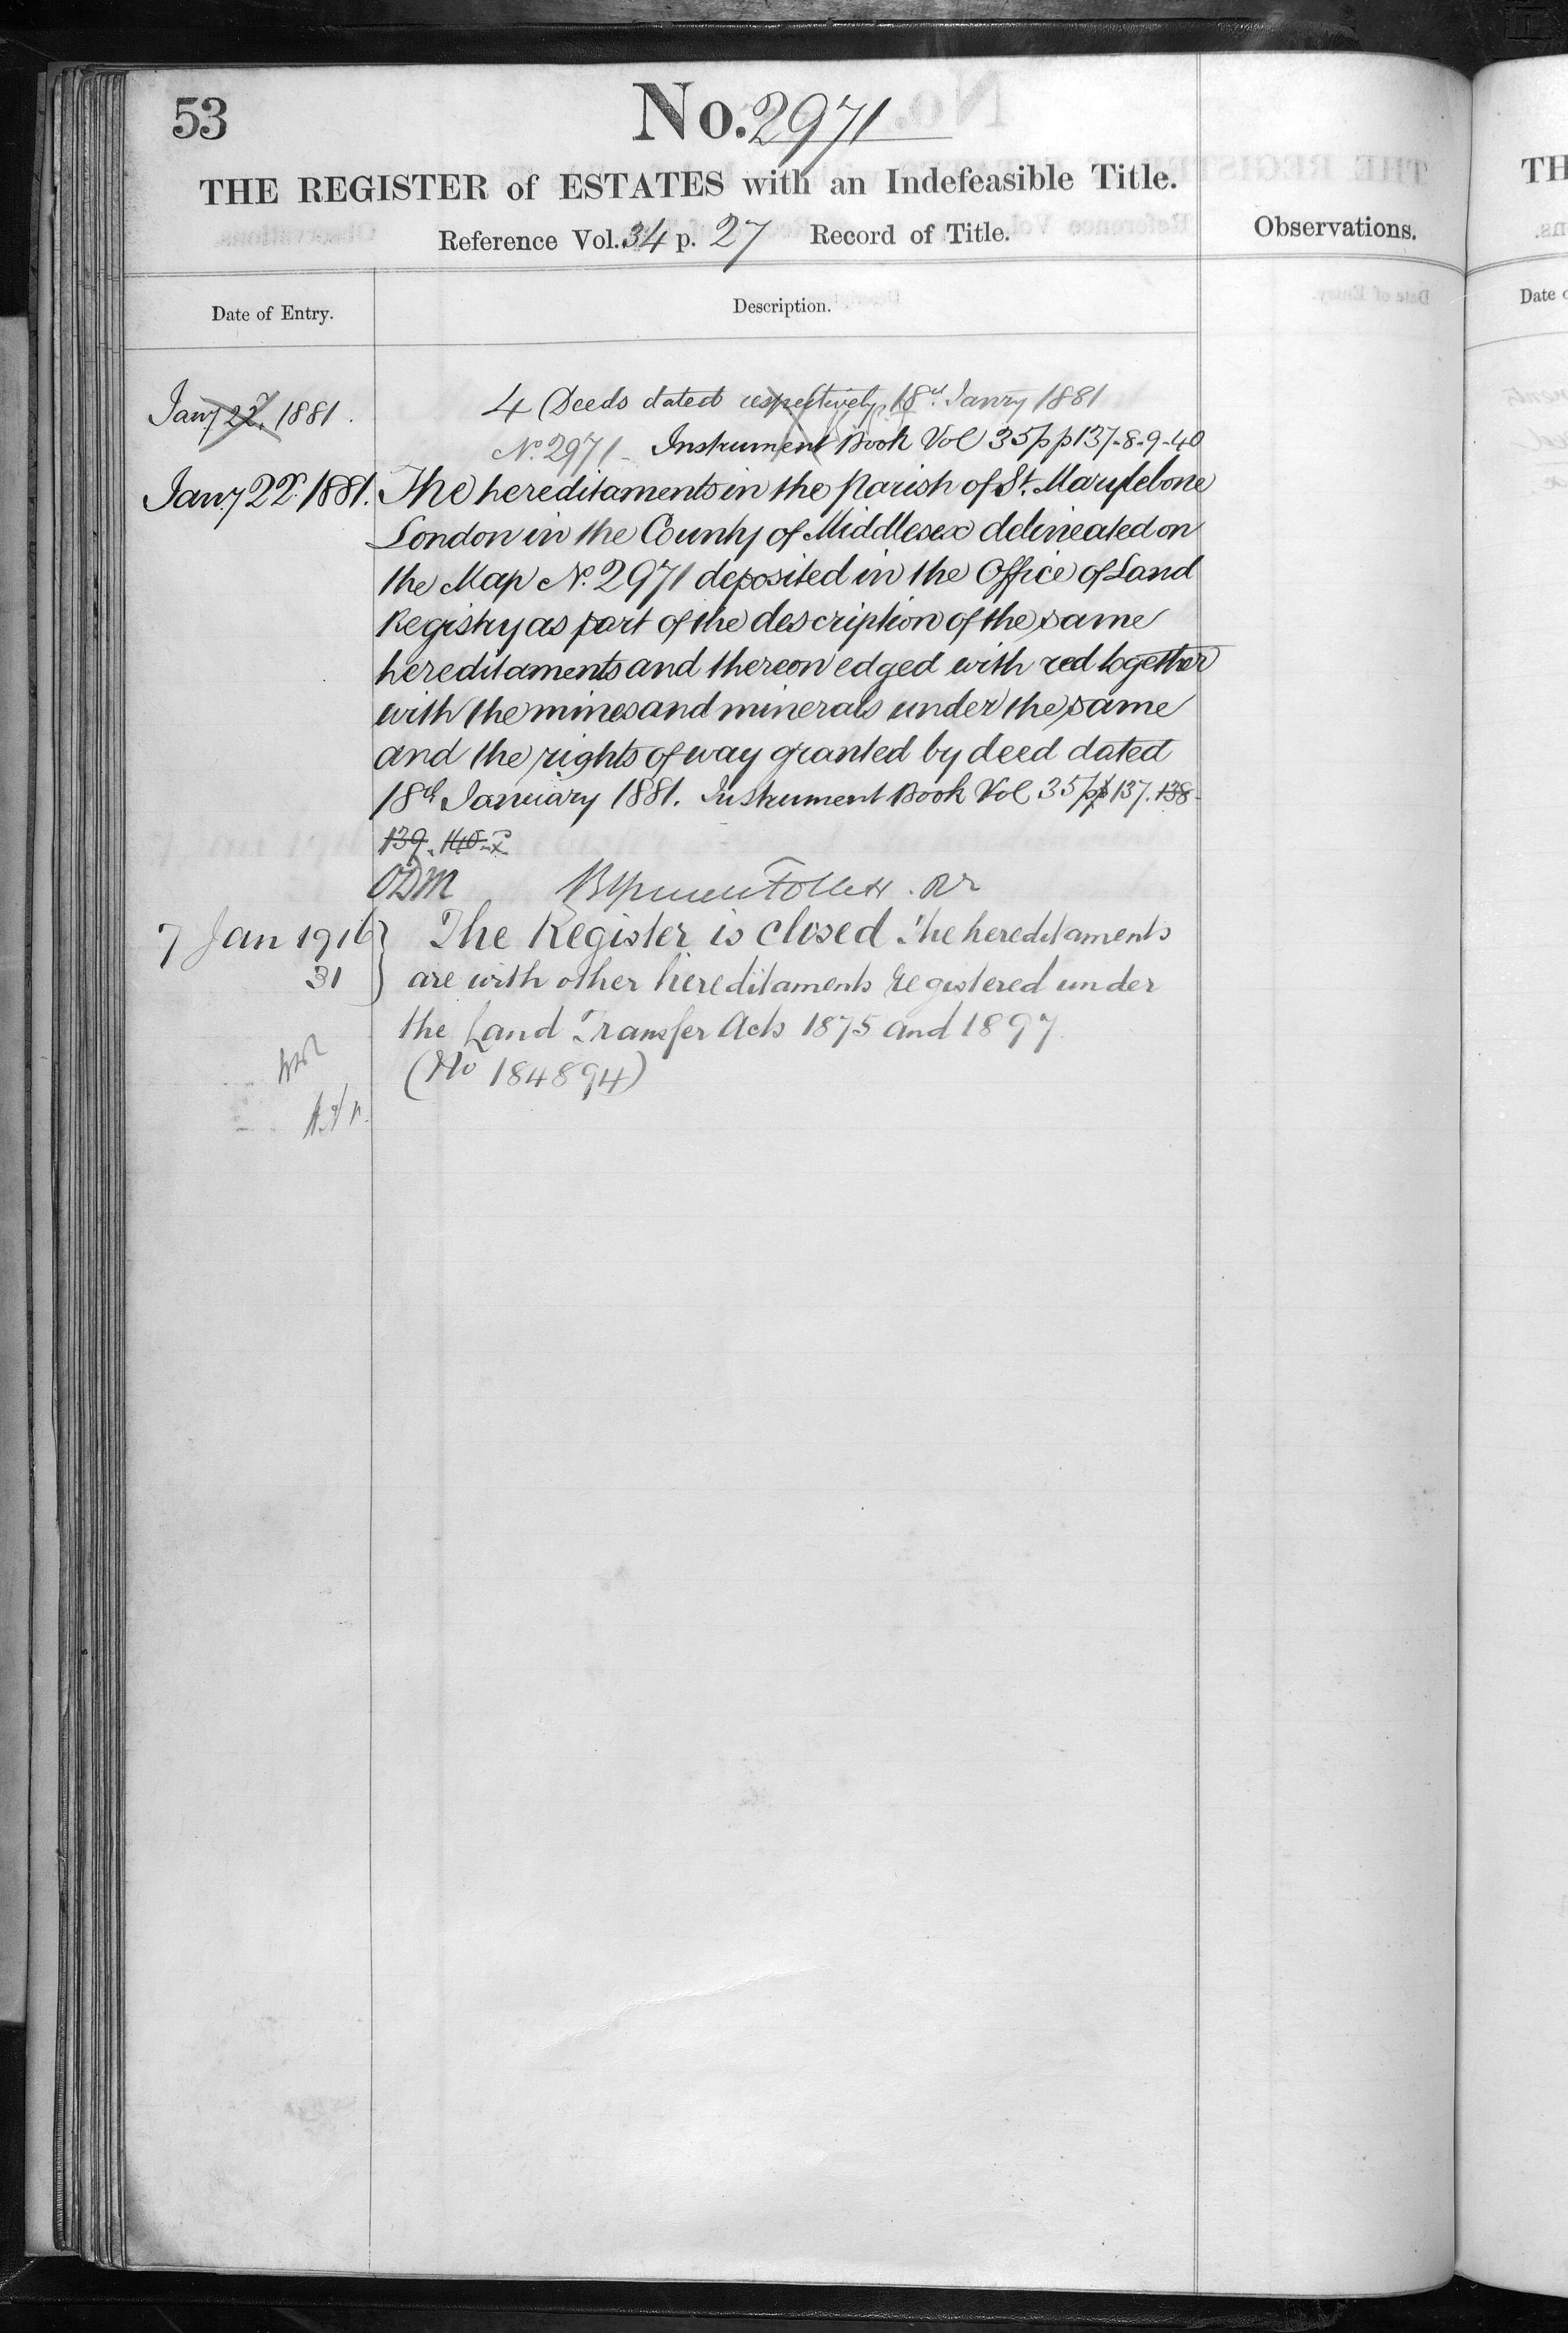 53
No. 2971
THE REGISTER of ESTATES with an Indefeasible Title.
Reference Vol. 34 p. 27 Record of Title.
Observations.
Date of Entry.
Description.
Jany 22d, 1881.
4 Deeds dated respectively 18th Janry 1881
No. 2971 - Instrument Book Vol 35 pp 137-8-9-40
Jany 22d 1881. The hereditaments in the parish of St. Marylebone
London in the County of Middlesex delineated on
the Map No. 2971 deposited in the Office of Land
Registry as part of the description of the same
hereditaments and thereon edged with red together
with the mines and minerals under the same
and the rights of way granted by deed dated
18th January 1881. Instrument Book Vol 35 pp 137. 138-
139. 140 -
ODM
7 Jan 1916 } The Register is closed The hereditaments
31 are with other hereditaments Registered under
the Land Transfer Acts 1875 and 1897
(No 184894)
TH
Date